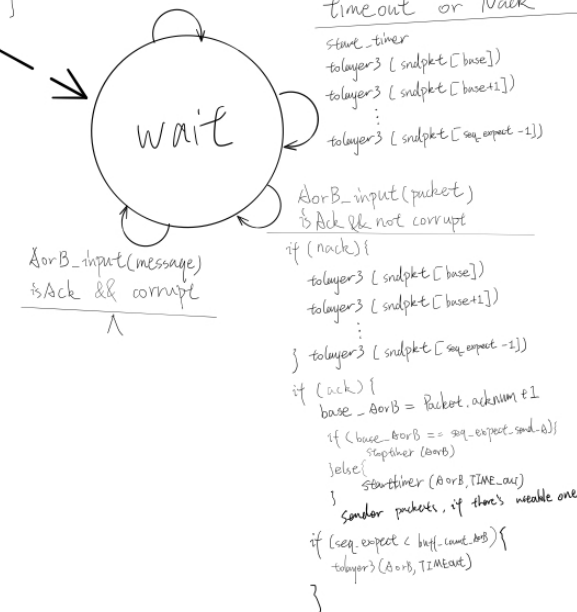 }
timeout or Nack
start_timer
tolayer3 ( sndpkt [base])
tolayer3 ( sndpkt [base+1])
⋮
tolayer3 ( sndpkt [seq_expect -1])
wait
AorB_input(packet)
isAck && not corrupt
AorB_input(message)
isAck && corrupt
Λ
if (nack){
tolayer3 ( sndpkt [base])
tolayer3 ( sndpkt [base+1])
⋮
} tolayer3 ( sndpkt [seq_expect -1])
if (ack){
base_AorB = Packet.acknum+1
if (base_AorB == seq_expect_send_A){
stoptimer (AorB)
}else{
starttimer (AorB, TIME_out)
}
sender packets, if there's useable one
if (seq_expect < buff_count_AorB){
tolayer3 (AorB, TIMEout)
}